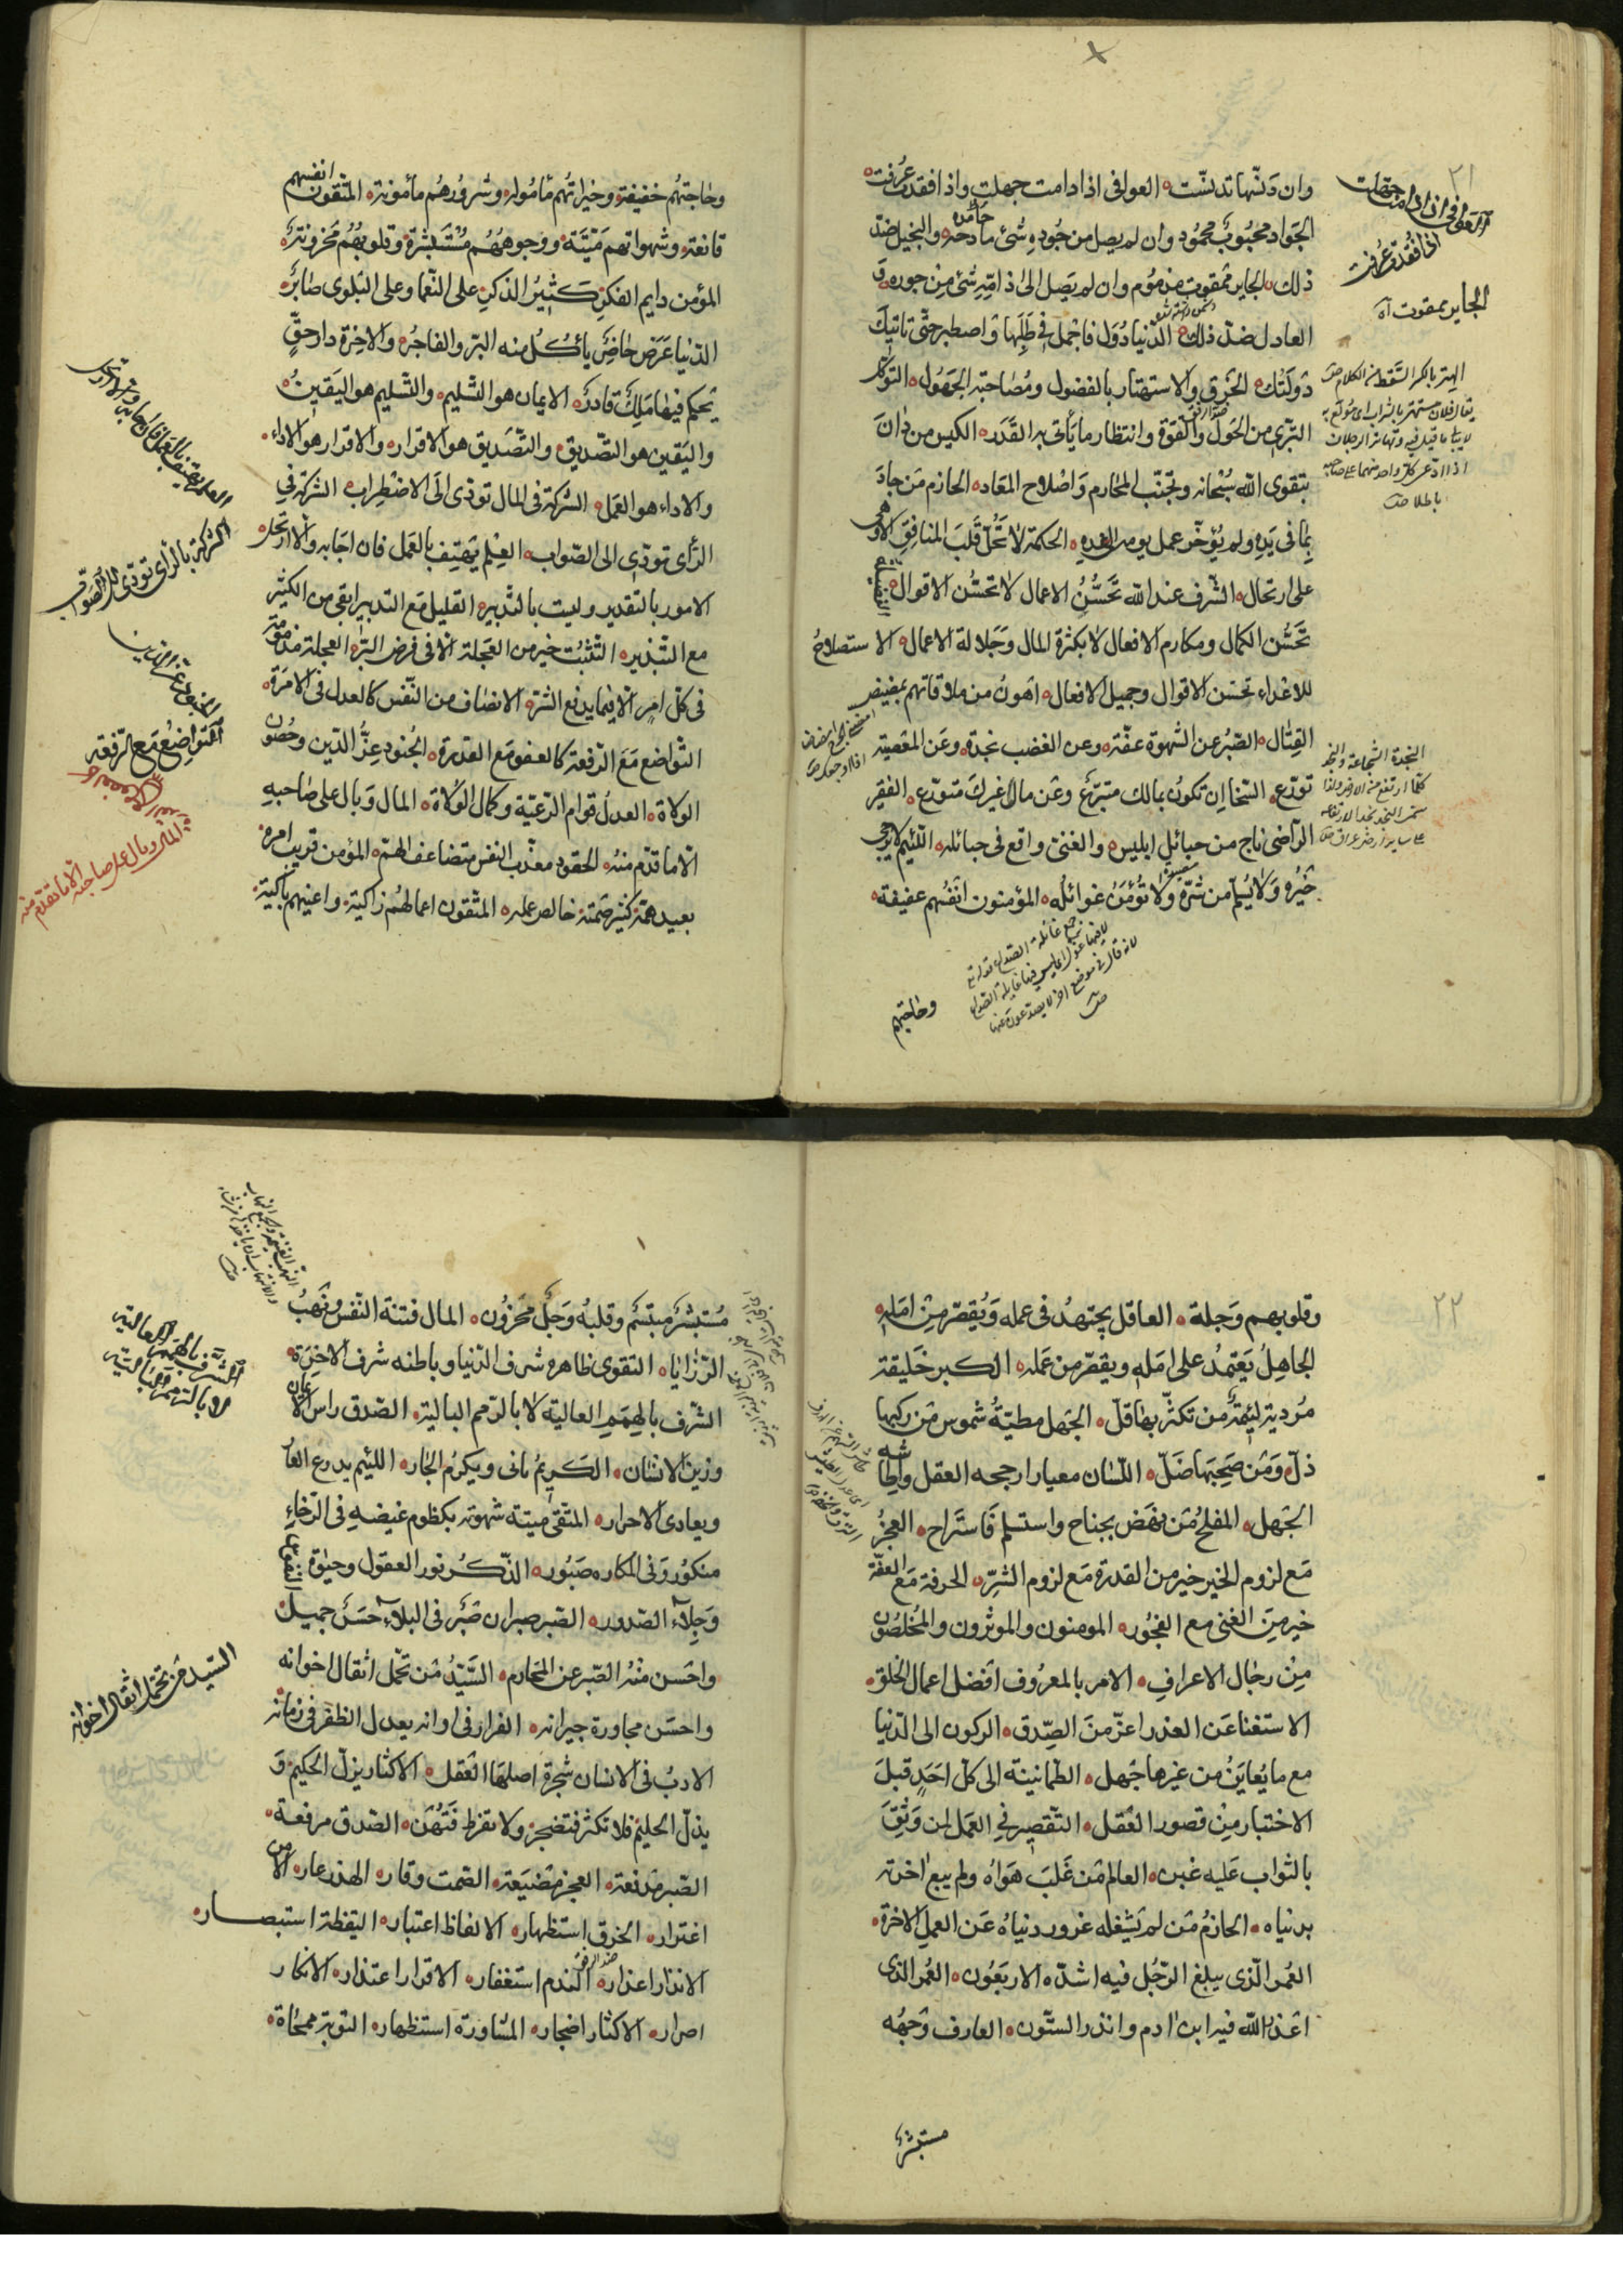 ٢١
وان دنتها تدنّت العوافى اذا دامت جهلت واذا فقدت عرفت
الجواد محبوب محمود وان لم يصل من جوده شئ مادحه والبخيل ضدّ
ذلك الجاير ممقوت مذموم وان لم يصل الى ذامّه شئ من جوره و
العادل ضدّ ذلك الدّنيا دُوَل فاجمل فى طلبها واصطبر حتّى تاتيك
دولتك الخرق والاستهتار بالفضول ومصاحبة الجهول التوكّل
التبرى من الحول والقوّة وانتظار ما يأتى به القدر الكيس من دان
بتقوى الله سبحانه وتجنّب المحارم واصلاح المعاد الحازم من جاد
بما فى يده ولم يؤخّر عمل يومه الى غده الحكمة لا تحلّ قلب المنافق الا وهى
على ارتحال الشرف عند الله بحسن الاعمال لا بحسن الاقوال
بحسن الكمال ومكارم الافعال لا بكثرة المال وجلالة الاعمال الاستصلاح
للاعداء بحسن الاقوال وجميل الافعال اهون من ملاقاتهم بمضيض
القتال الصّبر عن الشهوة عفّة وعن الغضب نجدة وعن المعصية
تورّع السّخا ان تكون بمالك متبرّع وعن مال غيرك متورّع الفقير
الرّاضى ناج من حبائل ابليس والغنىّ واقع فى حبائله اللّئيم لا يرجى
خيره ولا يسلم من شرّه ولا تؤمن غوائله المؤمنون انفسهم عفيفة
العوافى اذا دامت جهلت
اذا فقدت عرفت
الجاير ممقوت اه
وحاجتهم
وحاجتهم خفيفة وخيراتهم مأمولة وشرورهم مأمونة المتّقون انفسهم
قانعة وشهواتهم ميّتة ووجوههم مستبشرة وقلوبهم محزونة
المؤمن دايم الفكر كثير الذكر على النّعما وعلى البلوى صابر
الدّنيا عرض حاضر يأكل منه البرّ والفاجر والاخرة دار حقّ
يحكم فيها ملك قادر الايمان هو التسليم والتسليم هو اليقين
واليقين هو التّصديق والتّصديق هو الاقرار والاقرار هو الاداء
والاداء هو العمل الشركة فى المال تؤدّى الى الاضطراب الشركة فى
الرأى تؤدّى الى الصّواب العلم يهتف بالعمل فان اجابه والا ارتحل
الامور بالتقدير وليت بالتدبير القليل مع التدبير ابقى من الكثير
مع التبذير التثبّت خير من العجلة الا فى فرض البرّ العجلة مذمومة
فى كلّ امر الا فيما يدفع الشرّ الانصاف من النّفس كالعدل فى الامرة
التواضع مع الرّفعة كالعفو مع القدرة الجنود عزّ الدّين وحصون
الولاة العدل قوام الرّعيّة وكمال الولاة المال وبال على صاحبه
الا ما قدّم منه الحقود معذّب النفس متضاعف الهمّ المؤمن قريب امره
بعيد همّه كثير صمته خالص عمله المتّقون اعمالهم زاكية واعينهم باكية
الشركة بالرّأى تؤدى الى الصّواب
التواضع مع الرّفعة
المال وبال على صاحبه الا ما تقدّم منه
٢٢
وقلوبهم وجلة العاقل يجتهد فى عمله ويقصّر من امله
الجاهل يعتمد على امله ويقصّر من عمله الكبر خليقة
مردية لئيمة من تكثّر بها قلّ الجهل مطيّة شموس من ركبها
ذلّ ومن صحبها ضلّ اللّسان معيار ارجحه العقل واطاشه
الجهل المفلح من نهض بجناح واستسلم فاستراح العجز
مع لزوم الخير خير من القدرة مع لزوم الشرّ الحرفة مع العفّة
خير من الغنى مع الفجور المومنون والموثرون والمخلصون
من رجال الاعراف الامر بالمعروف افضل اعمال الخلق
الاستغنا عن العذر اعزّ من الصّدق الركون الى الدّنيا
مع ما يعاين من غيرها جهل الطمانينة الى كل احد قبل
الاختبار من قصور العقل التقصير فى العمل لمن وثق
بالثواب عليه غبن العالم من غلب هواه ولم يبع اخرته
بدنياه الحازم من لم يشغله غرور دنياه عن العمل للاخرة
العمر الّذى يبلغ الرّجل فيه اشدّه الاربعون العمر الذى
اعذر الله فيه ابن ادم وانذر الستّون العارف وجهه
مستبشر
مستبشر مبتسم وقلبه وجل محزون المال فتنة النّفس ونهب
الرّزايا التقوى ظاهره شرف الدّنيا وباطنه شرف الاخرة
الشرف بالهمم العالية لا بالرّمم البالية الصّدق راس الايمان
وزين الانسان الكريم يأبى ويكرم الجار اللئيم يدرع العار
ويعادى الاحرار المتّقى ميتة شهوته بكظوم غيضه فى الرّخاء
شكور وفى المكاره صبور الذّكر نور العقول وحيوة النفوس
وجلاء الصّدور الصّبر صبران صبر فى البلاء حسن جميل
واحسن منه الصّبر عن المحارم السّيّد من تحمّل اثقال اخوانه
واحسن مجاورة جيرانه الفرار فى اوانه يعدل الظفر فى زمانه
الادب فى الانسان شجرة اصلها العقل الاكثار يزلّ الحكيم و
يذلّ الحليم فلا تكثر فتضجر ولا تفرط فتهن الصّدق مرفعة
الصّبر مدفعة العجز مضيعة الصّمت وقار الهذر عار الامن
اغترار الخرق استظهار الالفاظ اعتبار اليقظة استبصار
الانذار اعذار الندم استغفار الاقرار اعتذار الانكار
اصرار الاكثار اضجار المشاورة استظهار التوبة ممحاة
الشّرف بالهمم العالية
لا بالرّمم البالية
السّيّد من تحمّل اثقال اخوانه